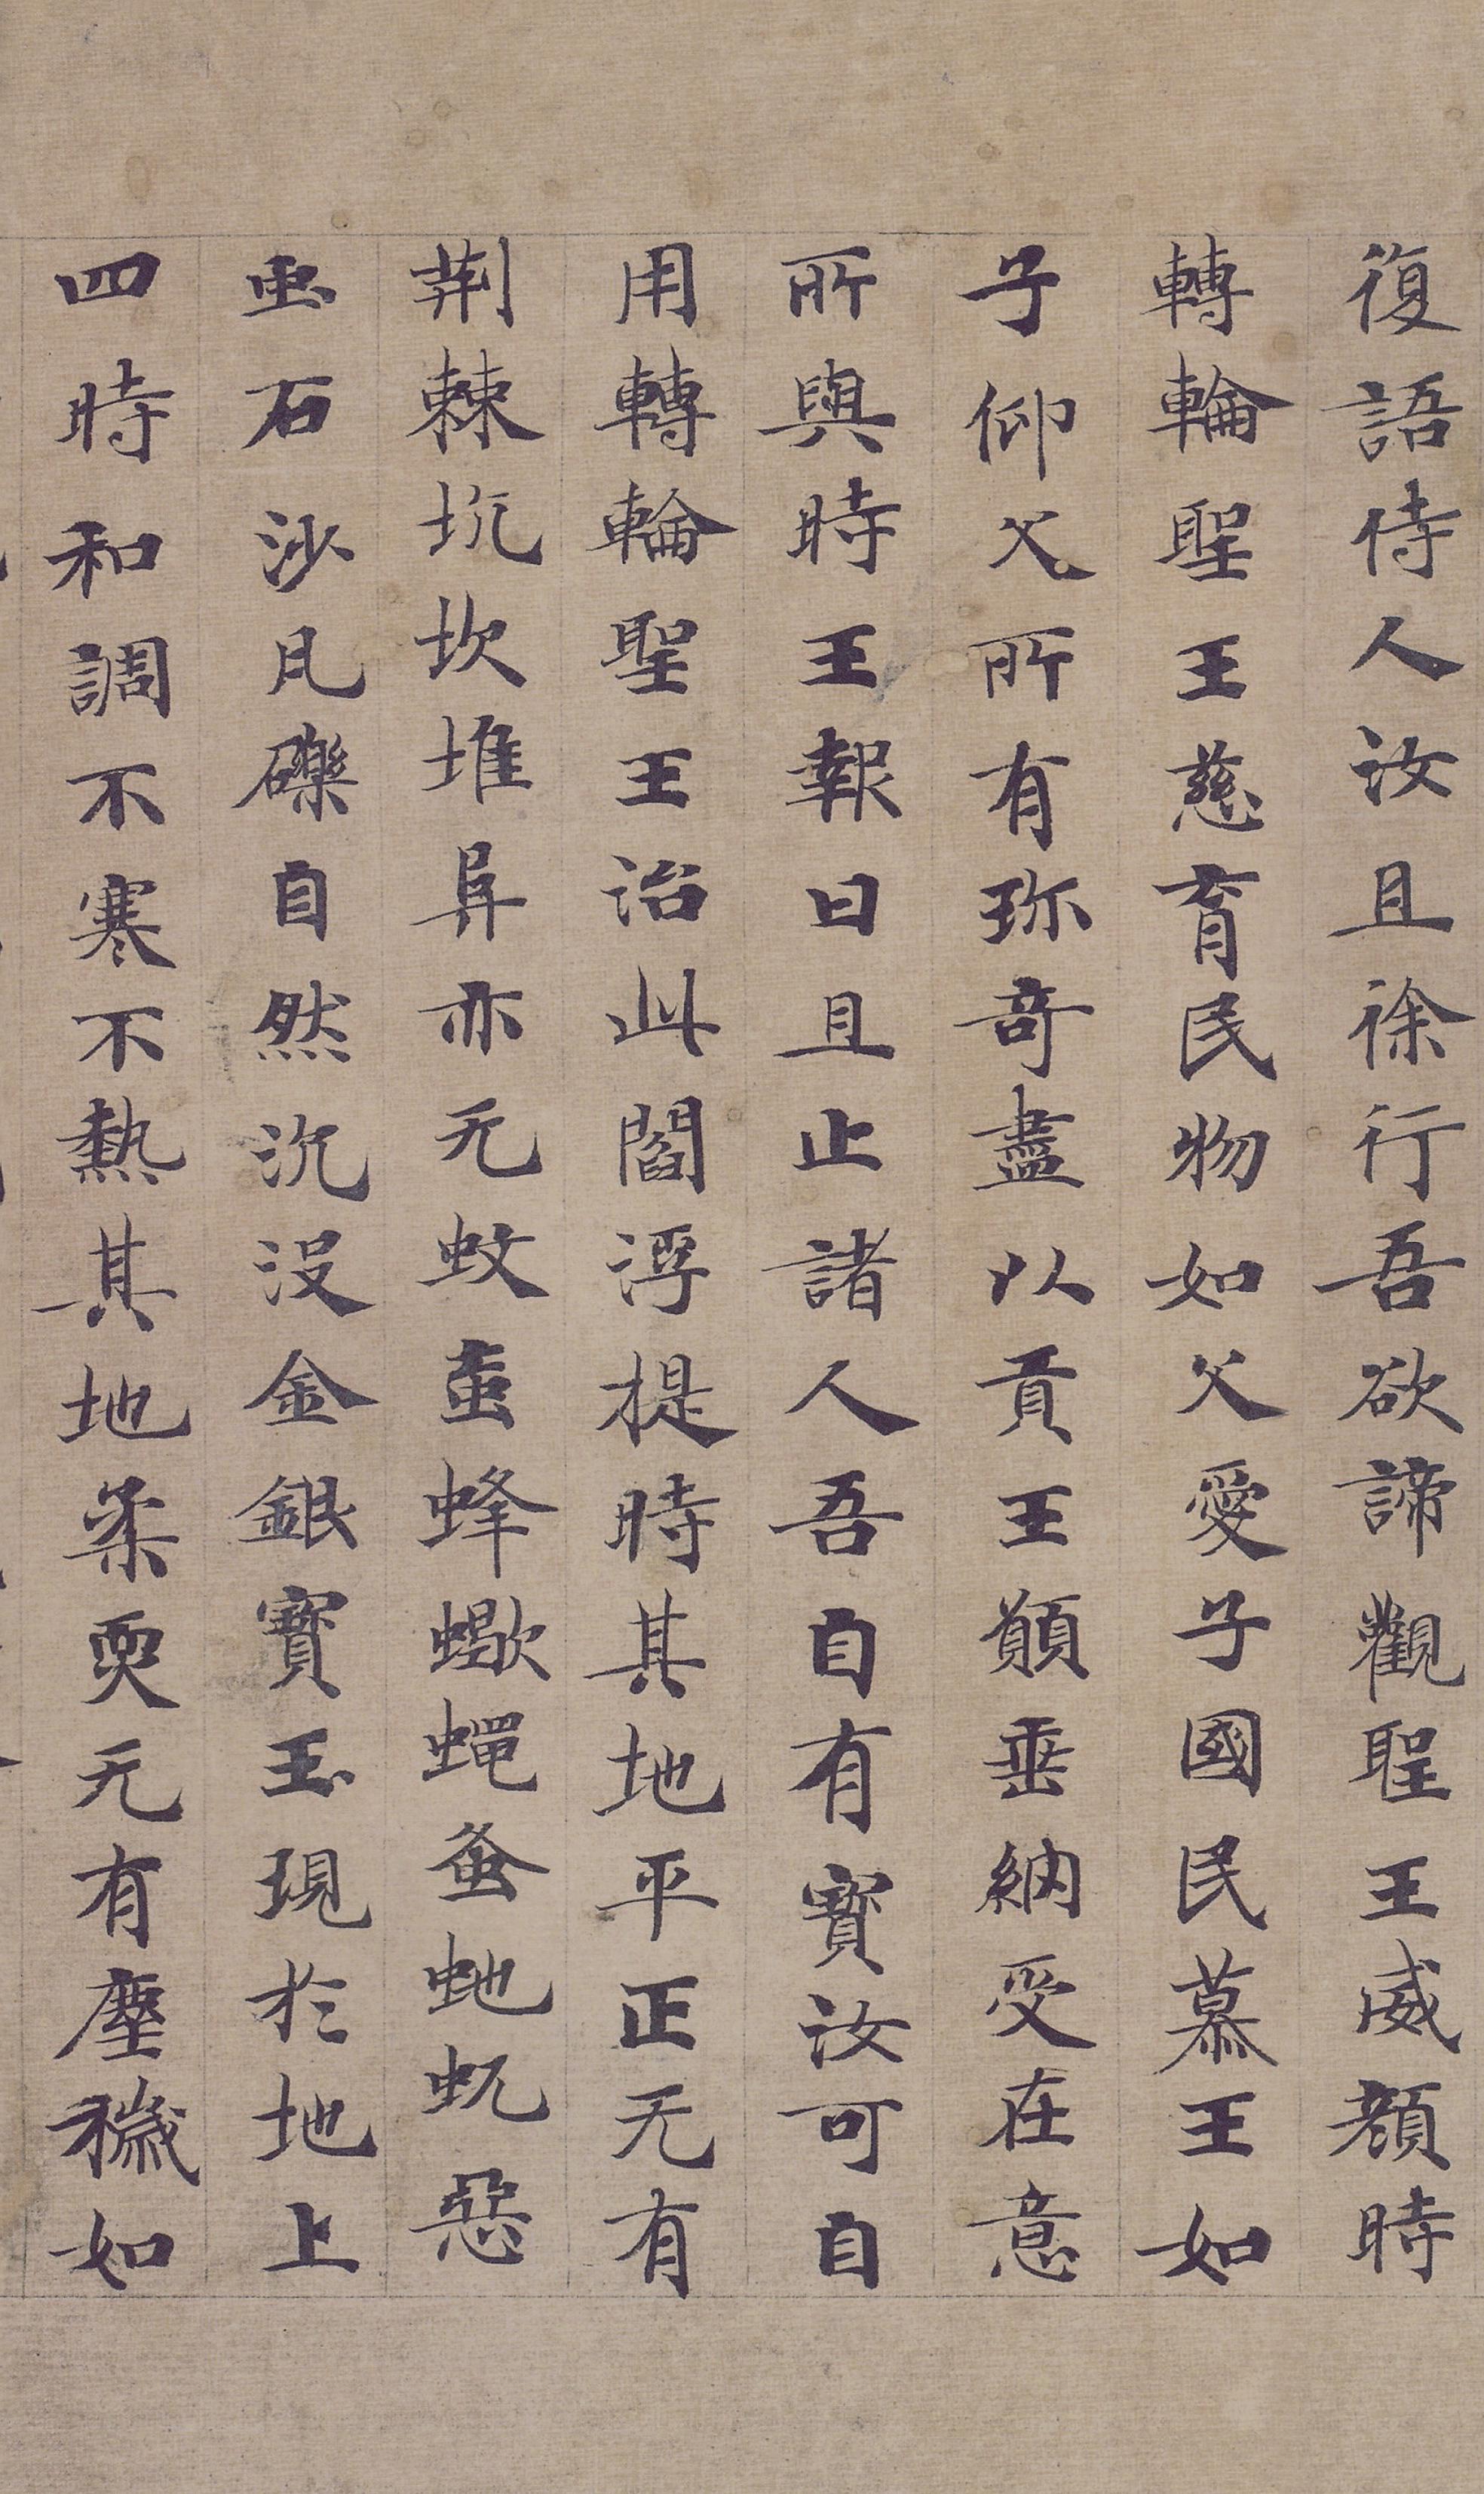 復語侍人汝且徐行吾欲諦觀聖王威顏時
轉輪聖王慈育民物如父愛子國民慕王如
子仰父所有珎奇盡以貢王願垂納受在意
所與時王報曰且止諸人吾自有寶汝可自
用轉輪聖王治此閻浮提時其地平正无有
荊棘坑坎堆阜亦无蚊䖟蜂蠍蠅蚤虵蚖惡
虫石沙凡礫自然沉没金銀寶玉現於地上
四時和調不寒不熱其地柔耎无有塵穢如